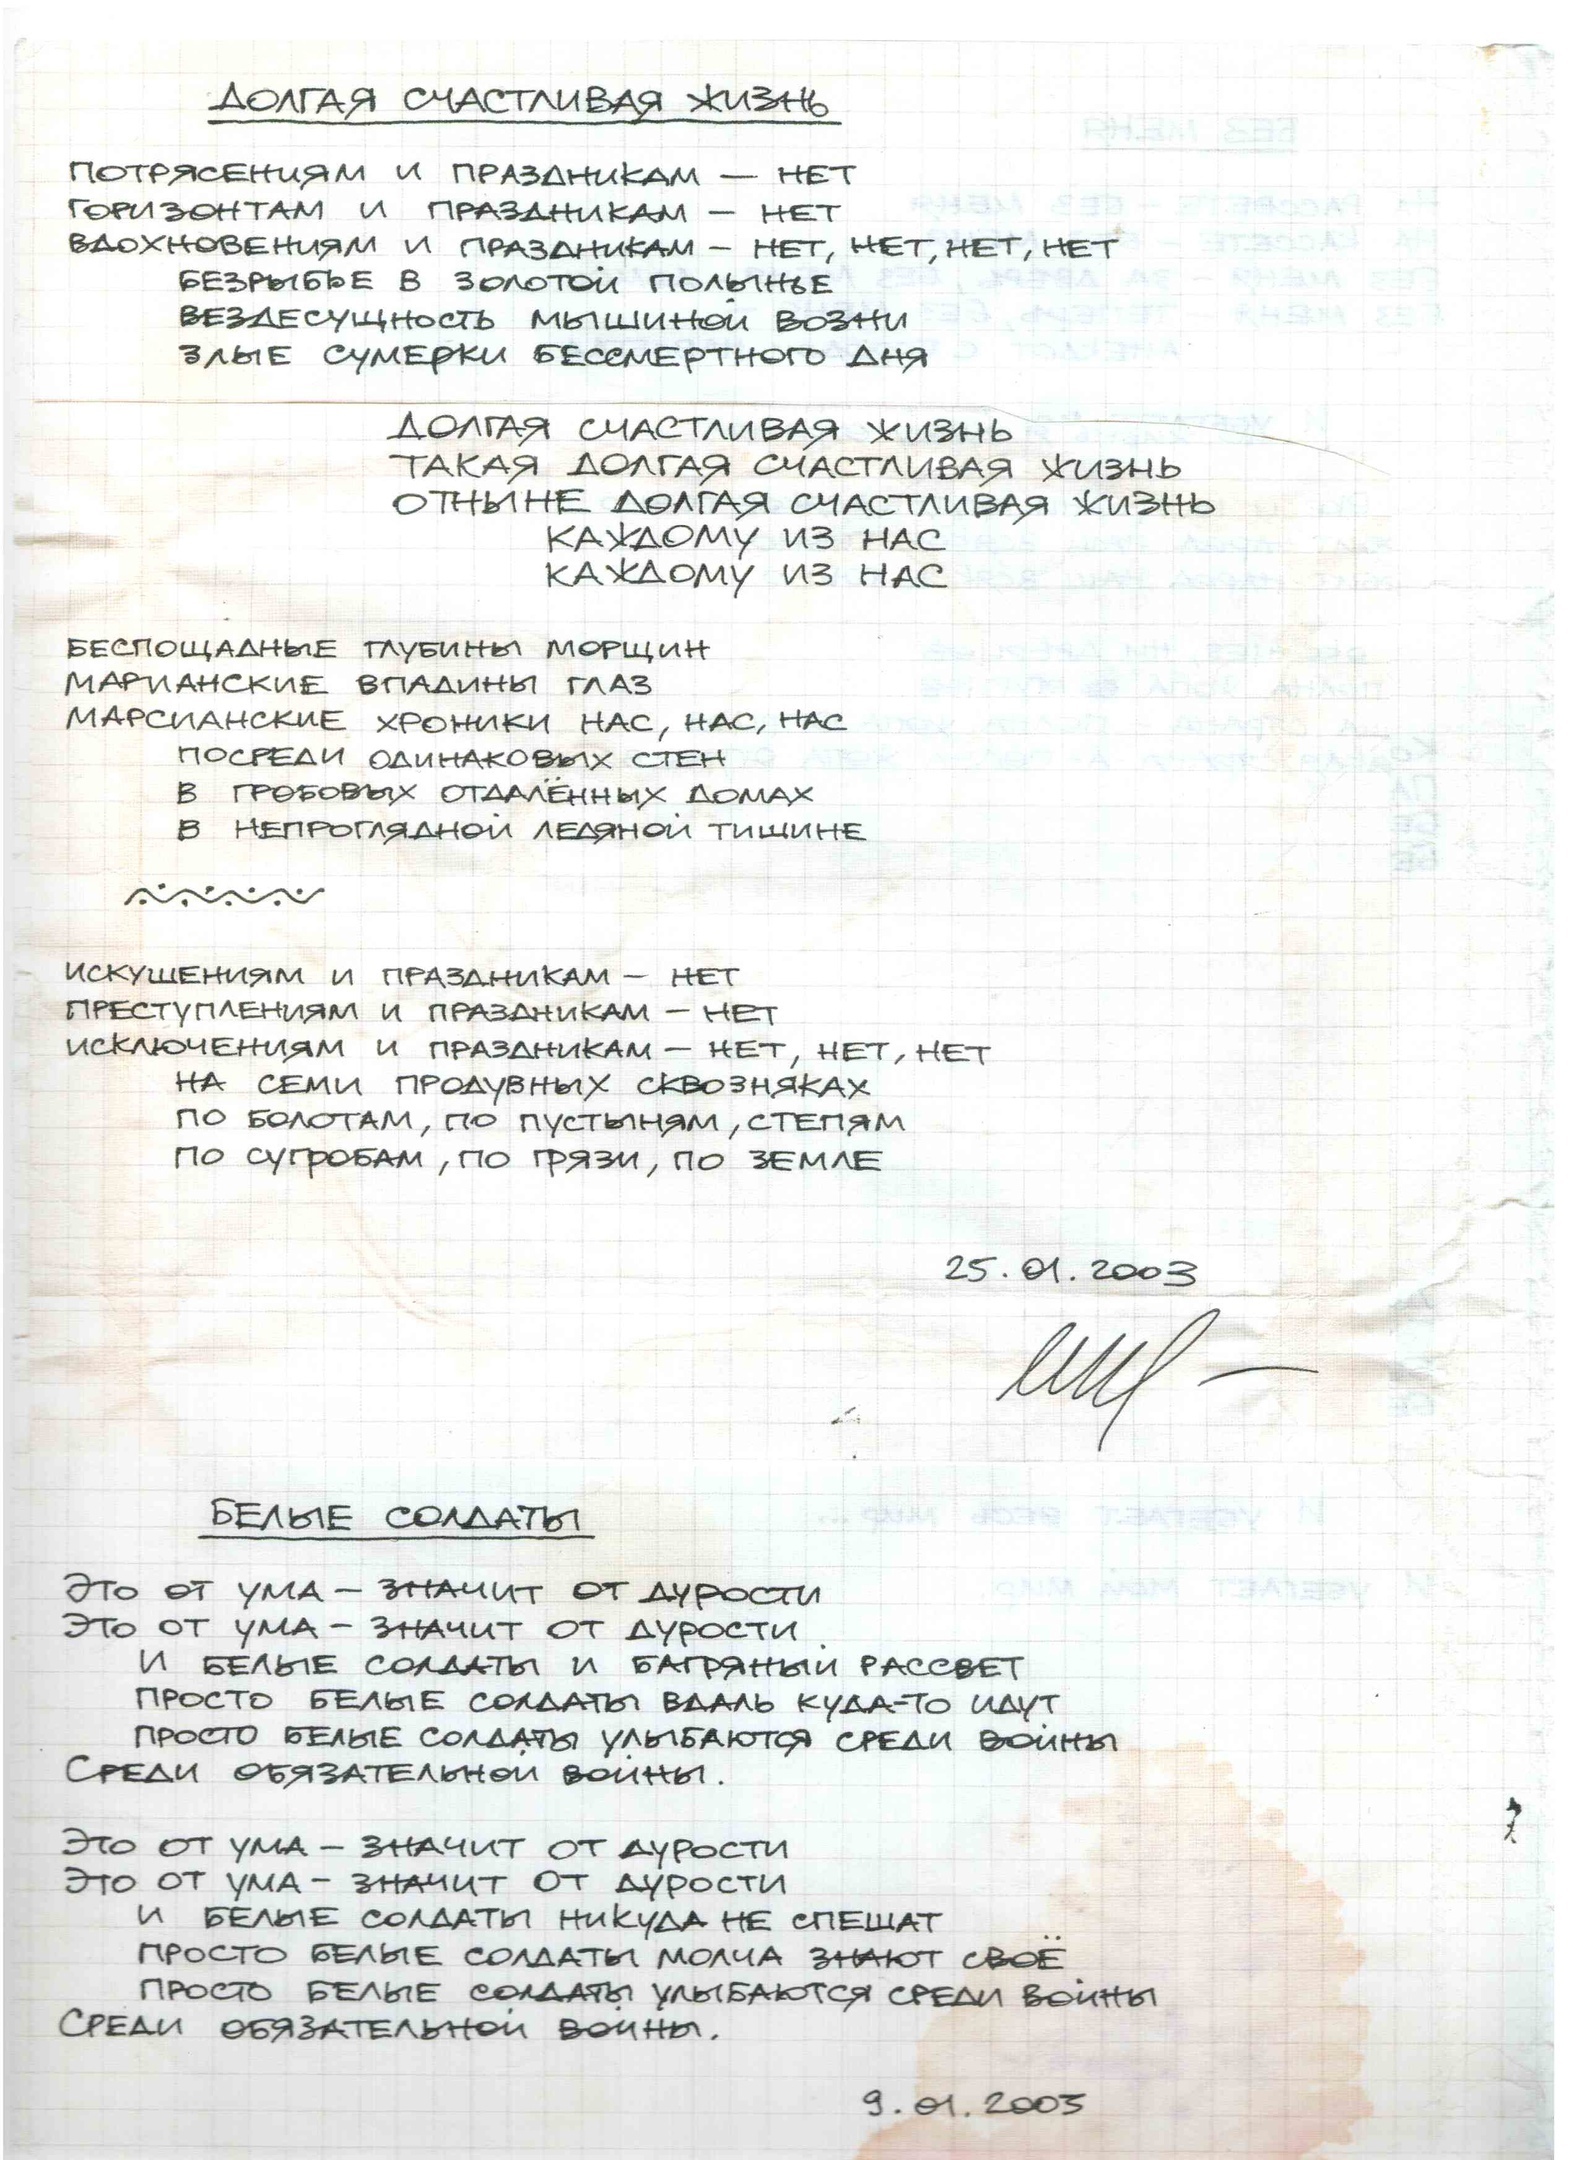 ДОЛГАЯ СЧАСТЛИВАЯ ЖИЗНЬ
ПОТРЯСЕНИЯМ И ПРАЗДНИКАМ — НЕТ
ГОРИЗОНТАМ И ПРАЗДНИКАМ — НЕТ
ВДОХНОВЕНИЯМ И ПРАЗДНИКАМ — НЕТ, НЕТ, НЕТ, НЕТ
БЕЗРЫБЬЕ В ЗОЛОТОЙ ПОЛЫНЬЕ
ВЕЗДЕСУЩНОСТЬ МЫШИНОЙ ВОЗНИ
ЗЛЫЕ СУМЕРКИ БЕССМЕРТНОГО ДНЯ
ДОЛГАЯ СЧАСТЛИВАЯ ЖИЗНЬ
ТАКАЯ ДОЛГАЯ СЧАСТЛИВАЯ ЖИЗНЬ
ОТНЫНЕ ДОЛГАЯ СЧАСТЛИВАЯ ЖИЗНЬ
КАЖДОМУ ИЗ НАС
КАЖДОМУ ИЗ НАС
БЕСПОЩАДНЫЕ ГЛУБИНЫ МОРЩИН
МАРИАНСКИЕ ВПАДИНЫ ГЛАЗ
МАРСИАНСКИЕ ХРОНИКИ НАС, НАС, НАС
ПОСРЕДИ ОДИНАКОВЫХ СТЕН
В ГРОБОВЫХ ОТДАЛЁННЫХ ДОМАХ
В НЕПРОГЛЯДНОЙ ЛЕДЯНОЙ ТИШИНЕ
ИСКУШЕНИЯМ И ПРАЗДНИКАМ — НЕТ
ПРЕСТУПЛЕНИЯМ И ПРАЗДНИКАМ — НЕТ
ИСКЛЮЧЕНИЯМ И ПРАЗДНИКАМ — НЕТ, НЕТ, НЕТ
НА СЕМИ ПРОДУВНЫХ СКВОЗНЯКАХ
ПО БОЛОТАМ, ПО ПУСТЫНЯМ, СТЕПЯМ
ПО СУГРОБАМ, ПО ГРЯЗИ, ПО ЗЕМЛЕ
25.01.2003
БЕЛЫЕ СОЛДАТЫ
ЭТО ОТ УМА — ЗНАЧИТ ОТ ДУРОСТИ
ЭТО ОТ УМА — ЗНАЧИТ ОТ ДУРОСТИ
И БЕЛЫЕ СОЛДАТЫ И БАГРЯНЫЙ РАССВЕТ
ПРОСТО БЕЛЫЕ СОЛДАТЫ ВДАЛЬ КУДА-ТО ИДУТ
ПРОСТО БЕЛЫЕ СОЛДАТЫ УЛЫБАЮТСЯ СРЕДИ ВОЙНЫ
СРЕДИ ОБЯЗАТЕЛЬНОЙ ВОЙНЫ.
ЭТО ОТ УМА — ЗНАЧИТ ОТ ДУРОСТИ
ЭТО ОТ УМА — ЗНАЧИТ ОТ ДУРОСТИ
И БЕЛЫЕ СОЛДАТЫ НИКУДА НЕ СПЕШАТ
ПРОСТО БЕЛЫЕ СОЛДАТЫ МОЛЧА ЗНАЮТ СВОЁ
ПРОСТО БЕЛЫЕ СОЛДАТЫ УЛЫБАЮТСЯ СРЕДИ ВОЙНЫ
СРЕДИ ОБЯЗАТЕЛЬНОЙ ВОЙНЫ.
9.01.2003